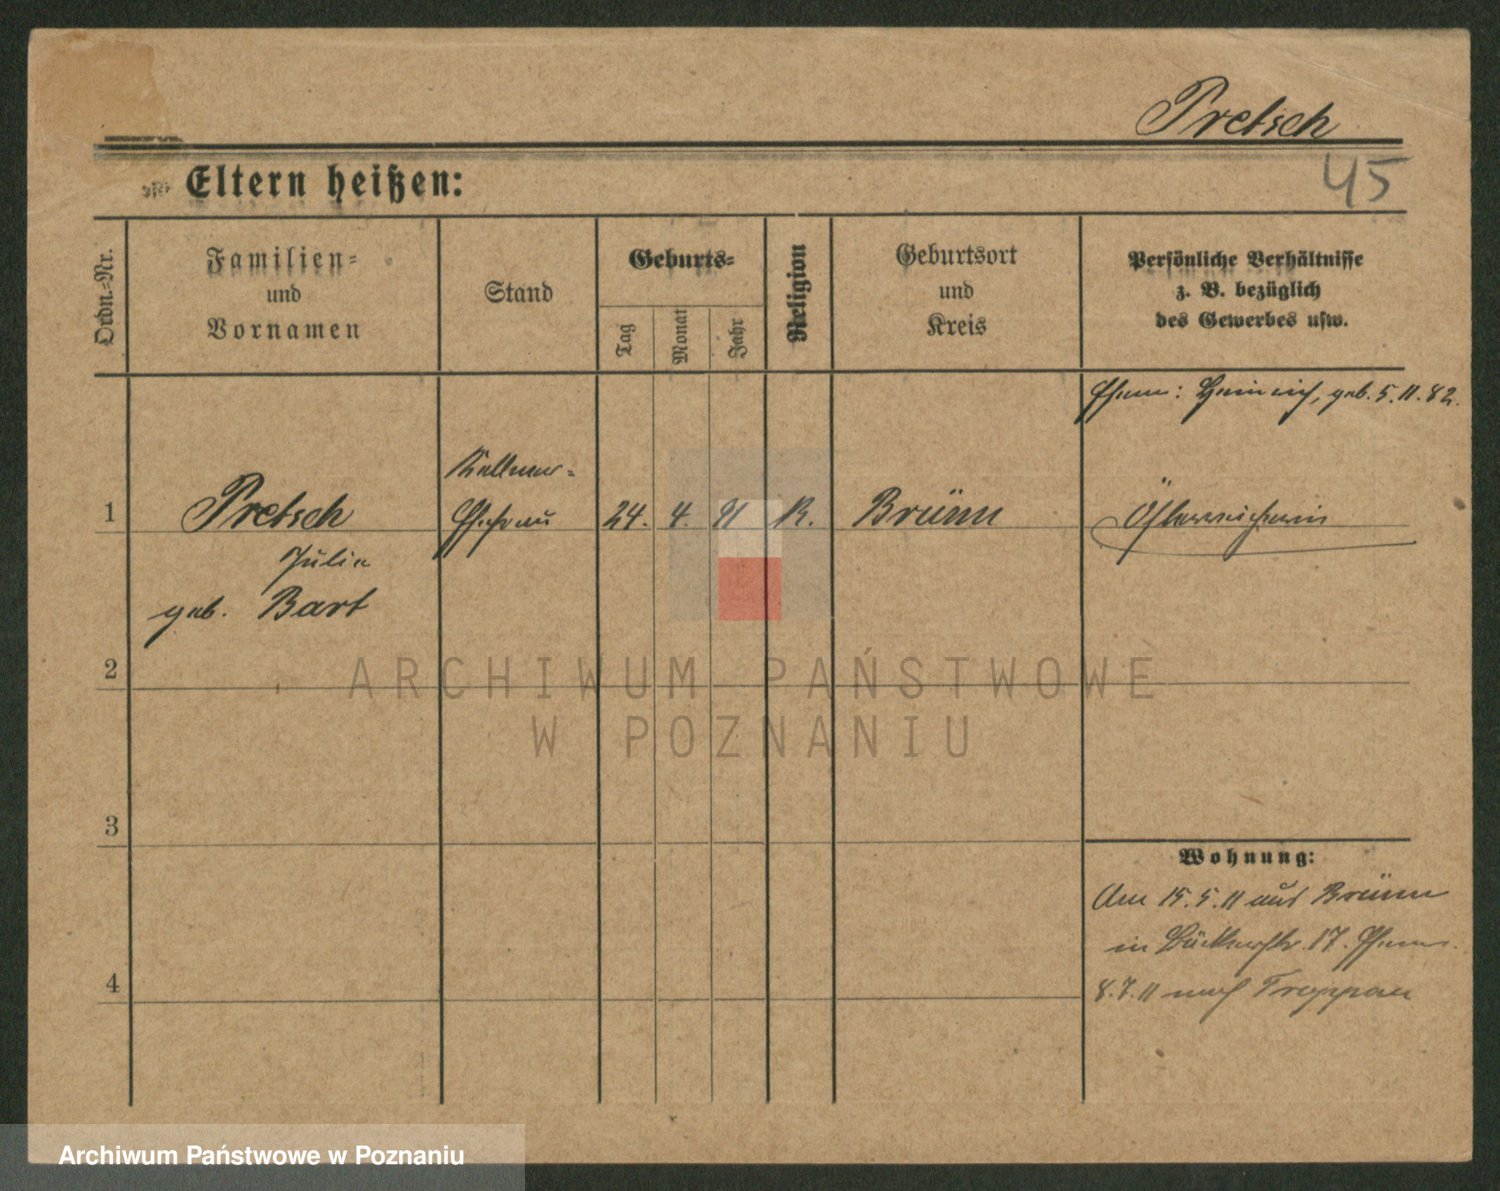 Pretsch
45
Eltern heißen:
Ordn.-Nr.
Familien-
und
Vornamen
Stand
Geburts-
Tag
Monat
Jahr
Religion
Geburtsort
und
Kreis
Persönliche Verhältnisse
z. B. bezüglich
des Gewerbes usw.
Ehem: Heinrich, geb. 5.11.82.
1
Pretsch
Julie
geb. Bart
Kellner-
Ehefrau
24.
4.
91
K.
Brünn
Österreicherin
2
3
4
ARCHIWUM PAŃSTWOWE
W POZNANIU
Wohnung:
Am 15.5.11 aus Brünn
in 17. Ehem.
8.7.11 nach Troppau
Archiwum Państwowe w Poznaniu